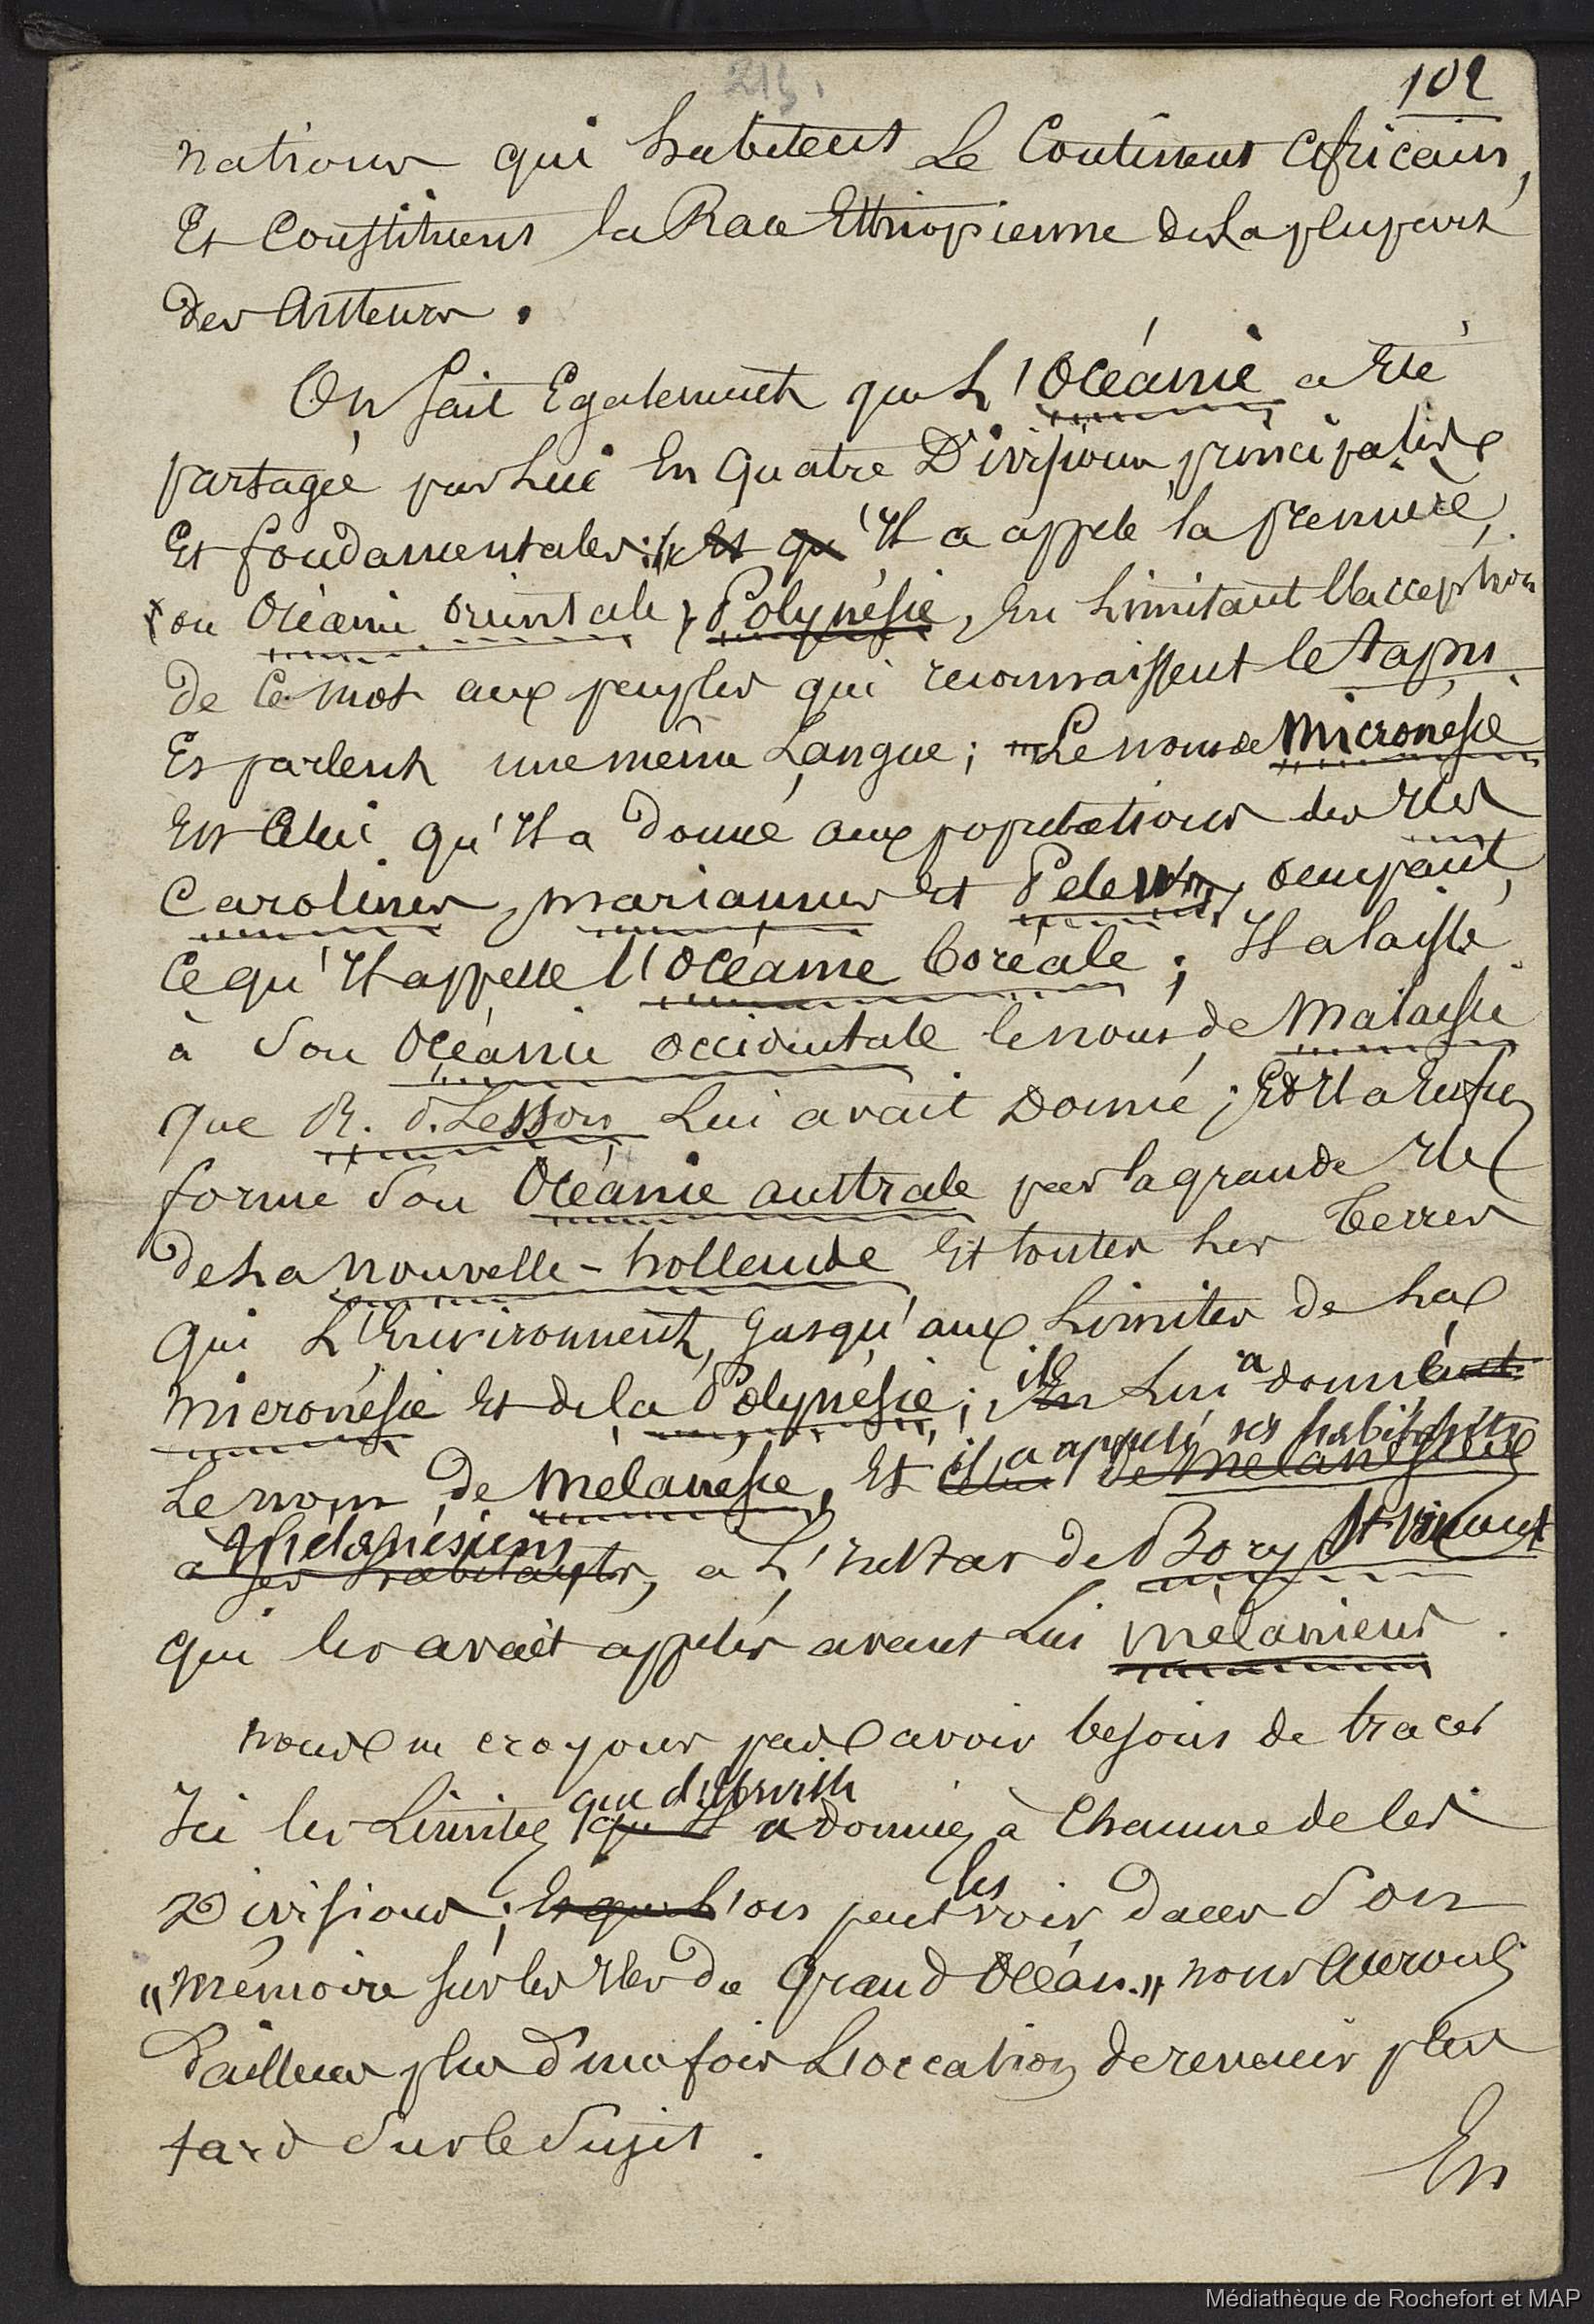 213.
102
nations qui habitent Le Continent Africain,
Et Constituent la Race Ethiopienne de La plupart
des Auteurs.
On sait Egalement que L'Océanie a Eté
partagée par Lui En quatre Divisions principales
Et fondamentales: Et qu'Il a appelé la première,
ou Océanie orientale, Polynésie, En Limitant l'acception
de Ce mot aux peuples qui reconnaissent le tapu
Et parlent une même Langue; Le nom de Micronésie
Est Celui qu'Il a donné aux populations des Iles
Carolines, mariannes Et Pelew, occupant
Ce qu'Il appelle l'Océanie boréale; Il a laissé
à Son Océanie occidentale le nom de Malaisie
que R. P. Lesson Lui avait Donné; Et Il a Enfin
formé Son Océanie australe par la grande Ile
de La nouvelle-hollande Et toutes Les terres
qui L'Environnent, Jusqu'aux Limites de La
micronésie Et de la Polynésie; il En Lui a donné
Le nom de Mélanésie, Et il a appelé ses habitants de Mélanésiens
Mélanésiens a ses habitants, a L'Instar de Bory St Vincent
qui les avait appelés avant Lui mélaniens.
nous ne croyons pas avoir besoin de tracer
Ici les Limites que d'Urville qu'Il a données à Chacune de ces
Divisions; Et que L'on peut les voir dans Son
"Mémoire sur les Iles du Grand Océan." nous aurons
d'ailleurs plus d'une fois L'occasion de revenir plus
tard Sur le Sujet.
En
Médiathèque de Rochefort et MAP